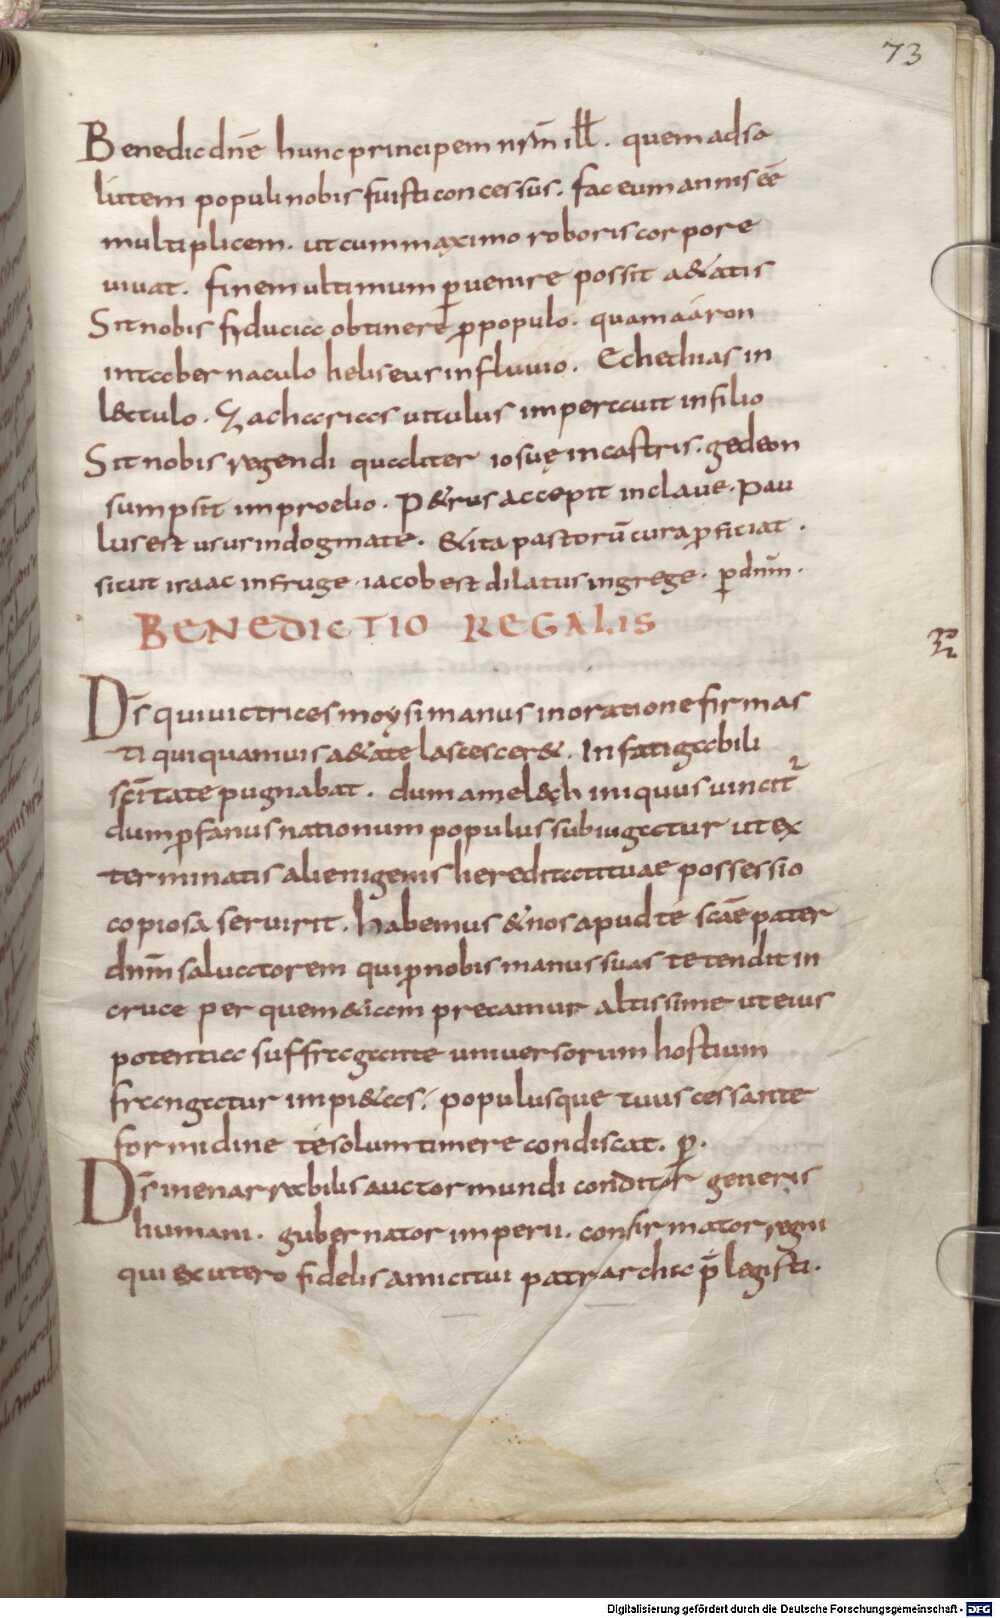 73
Benedic dñe hunc principem nr̄m ill̄. quem ad sa
lutem populi nobis fuisti concessus. fac eum annis eē
multiplicem. ut cum maximo roboris corpore
uiuat. finem ultimum ꝑuenire possit aetatis
Sit nobis fiducia obtinere ꝓ populo. quam aaron
in tabernaculo heliseus in fluuio. Echechias in
lectulo. Zacharias uitulus imperauit in filio
Sit nobis regendi qualiter iosuę in castris. gedeon
sumpsit in proelio. Petrus accepit in claue. Pau
lus est usus in dogmate. & ita pastorū cura ꝓficiat.
sicut isaac in fruge. iacob est dilatus in grege. ꝑ dnm̄.
BENEDICTIO REGALIS
Dš qui uictrices moysi manus in oratione firmas
ti qui quamuis aetate lascesceret. Infatigabili
sc̄itate pugnabat. dum amelech iniquus uincit᷑
dum ꝓfanus nationum populus subiugatur ut ex
terminatis alienigenis hereditati tuae possessio
copiosa seruirit. Habemus & nos apud te sc̄ae pater
dnm̄ saluatorem qui ꝓ nobis manus suas tetendit in
cruce per quem etiam precamur altissime ut eius
potentia suffragante uniuersorum hostium
frangatur impietas. populusque tuus cessante
formidine te solum timere condiscat. ꝑ.
Dš inenarrabilis auctor mundi conditor generis
humani. gubernator imperii. confirmator regni
qui ex utero fidelis amici tui patriarchae p̄elegisti.
Digitalisierung gefördert durch die Deutsche Forschungsgemeinschaft - DFG